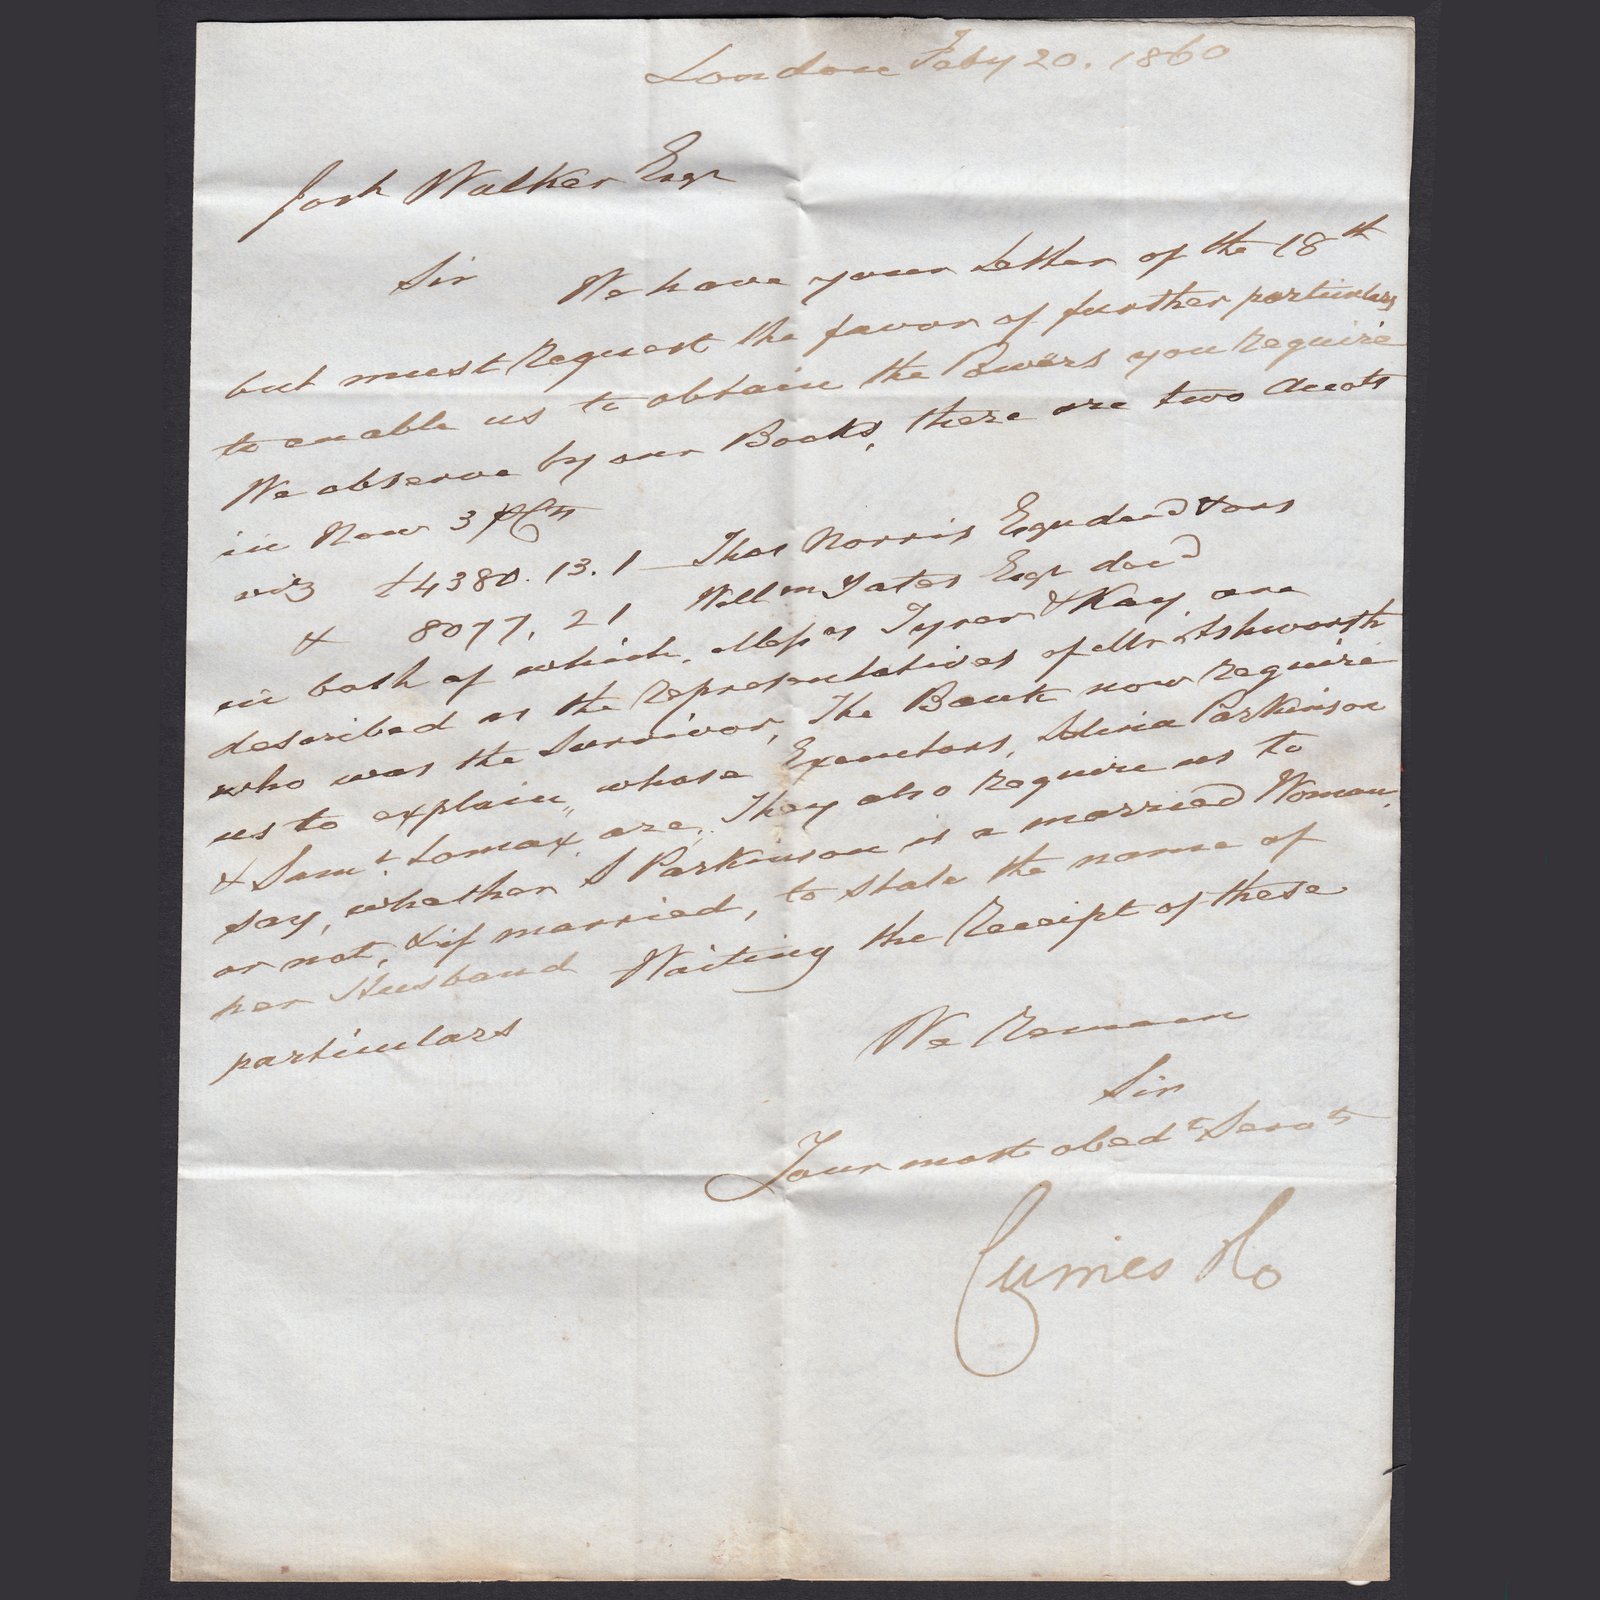 London Feby 20. 1860
Josh Walker Esqr
Sir We have your Letter of the 18th
but must request the favor of further particulars
to enable us to obtain the Powers you require
We observe by our Books, there are two Accots
in New 3 p Cts
viz £4380. 13. 1 Thos Norris Esqr decd & ors
& 8077. 2 1 Willm Yates Esqr decd
in both of which, Messrs Tyrer & Kay, are
described as the representatives of Mr Ashworth
who was the Survivor, The Bank now require
us to explain, whose Executors, Selina Parkinson
& Saml. Lomax, are, They also require us to
say, whether S Parkinson is a married Woman,
or not, & if married, to state the name of
her Husband Waiting the Receipt of these
particulars
We Remain
Sir
Your most obedt Servts
Curries & Co